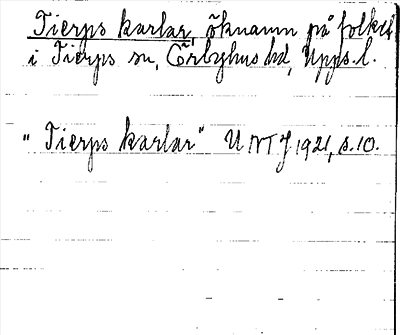 Tierps karlar, öknamn på folket
i Tierps sn, Örbyhus hd, Upps. l.
"Tierps karlar" UNTJ 1921, s. 10.